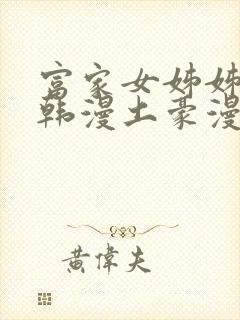 富家女姊姊
韩漫土豪漫
黄偉夫